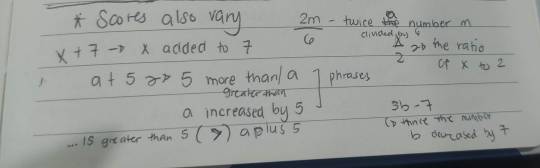 * Scores also vary
2m/6 - twice a number m
divided by 6
x + 7 → x added to 7
x/2 → the ratio
of x to 2
a + 5 → 5 more than/a
greater than
phrases
a increased by 5
... is greater than 5 (>) a plus 5
3b - 7
↳ thrice the number
b decreased by 7